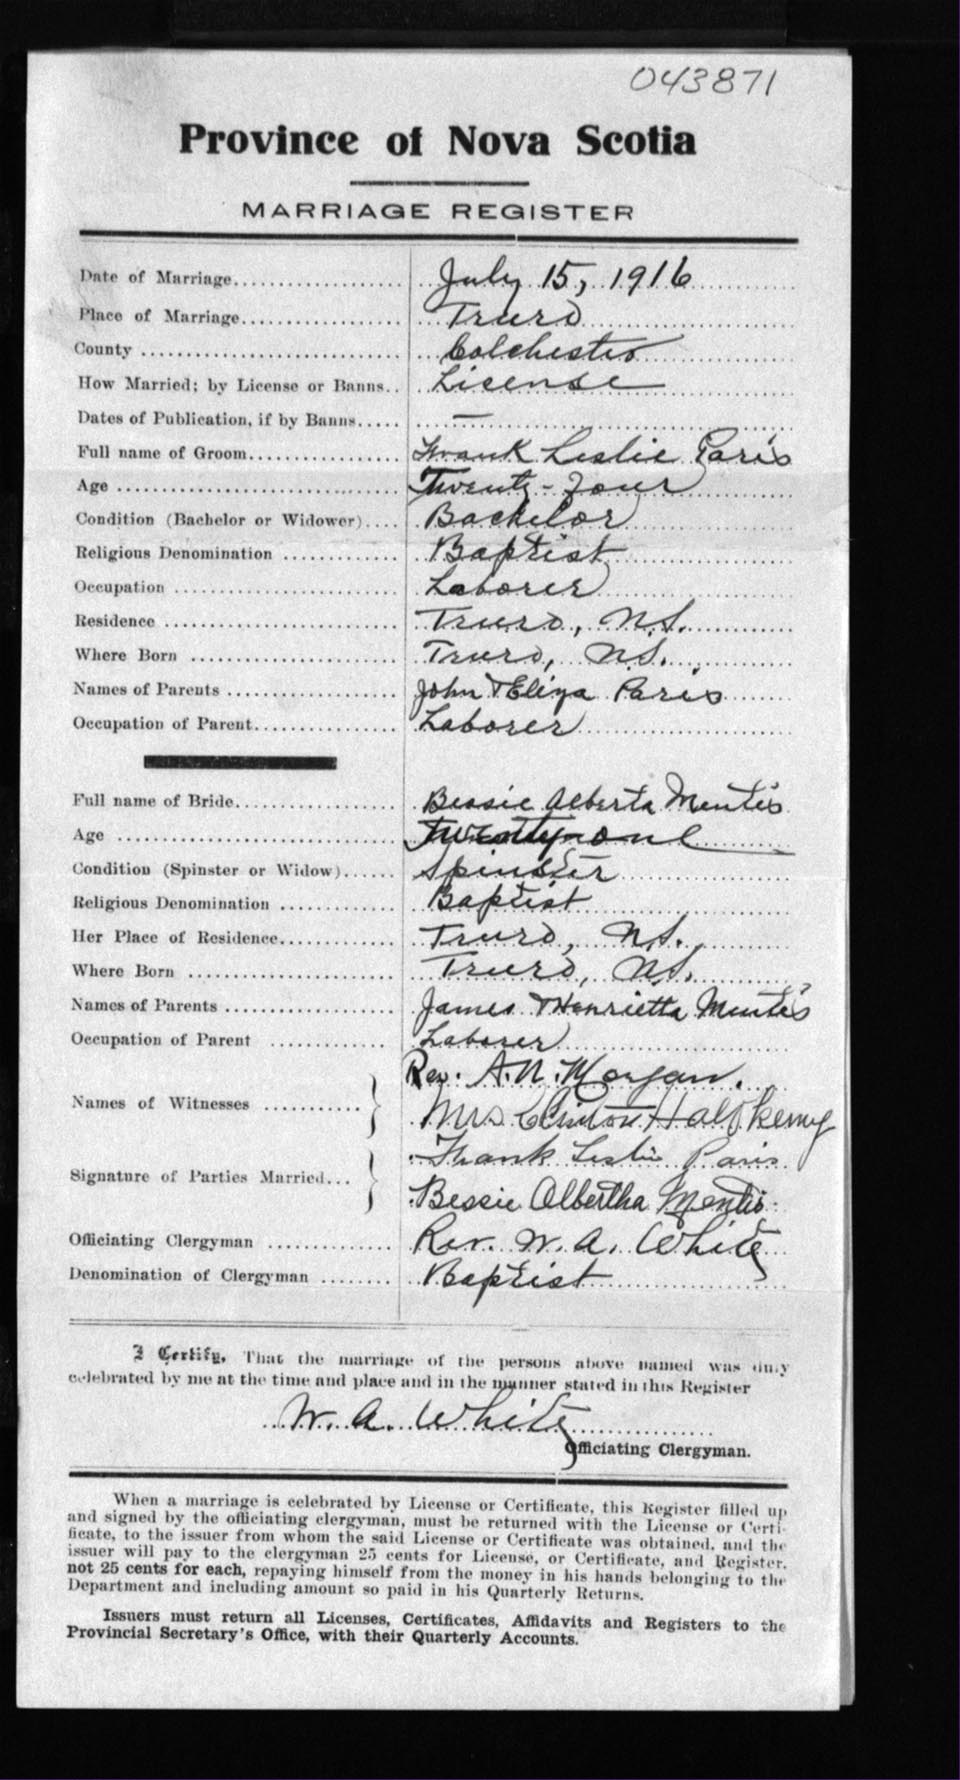 043871
Province of Nova Scotia
MARRIAGE REGISTER
Date of Marriage.................... July 15, 1916
Place of Marriage................... Truro
County .............................. Colchester
How Married; by License or Banns.. License
Dates of Publication, if by Banns..... —
Full name of Groom.................. Frank Leslie Paris
Age ................................. Twenty-Four
Condition (Bachelor or Widower).... Bachelor
Religious Denomination ............. Baptist
Occupation .......................... Laborer
Residence ........................... Truro, N.S.
Where Born ........................ Truro, N.S.
Names of Parents .................. John & Eliza Paris
Occupation of Parent................ Laborer
Full name of Bride................... Bessie Alberta Mentis
Age ................................. Twenty-one
Condition (Spinster or Widow)...... Spinster
Religious Denomination ............. Baptist
Her Place of Residence............. Truro, N.S.
Where Born ........................ Truro, N.S.
Names of Parents .................. James & Henrietta Mentis
Occupation of Parent ............. Laborer
Rev. A. N. Morgan.
Names of Witnesses ........... } Mrs Clinton
Frank Leslie Paris
Signature of Parties Married... } Bessie Albertha Mentis
Officiating Clergyman ............. Rev. W. A. White
Denomination of Clergyman ........ Baptist
I Certify, That the marriage of the persons above named was duly
celebrated by me at the time and place and in the manner stated in this Register
W. A. White
Officiating Clergyman.
When a marriage is celebrated by License or Certificate, this Register filled up
and signed by the officiating clergyman, must be returned with the License or Certi-
ficate, to the issuer from whom the said License or Certificate was obtained, and the
issuer will pay to the clergyman 25 cents for License, or Certificate, and Register,
not 25 cents for each, repaying himself from the money in his hands belonging to the
Department and including amount so paid in his Quarterly Returns.
Issuers must return all Licenses, Certificates, Affidavits and Registers to the
Provincial Secretary's Office, with their Quarterly Accounts.